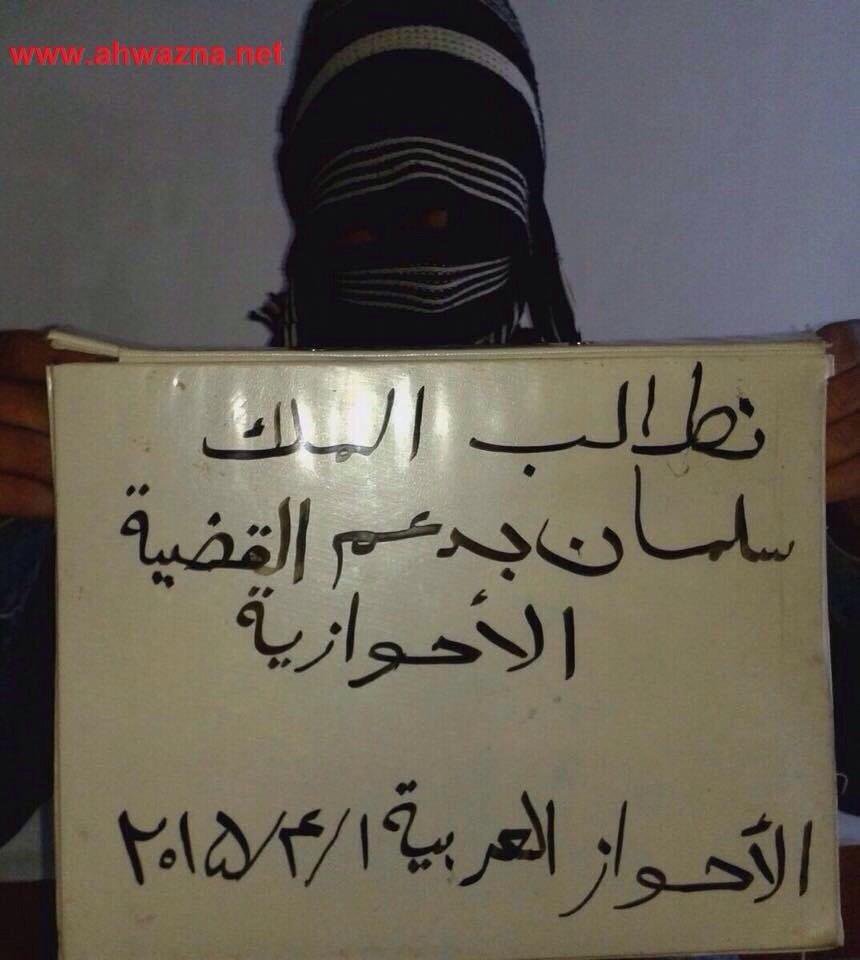 www.ahwazna.net
نطالب الملك
سلمان بدعم القضية
الأحوازية
الأحواز العربية ٢٠١٥/٤/١